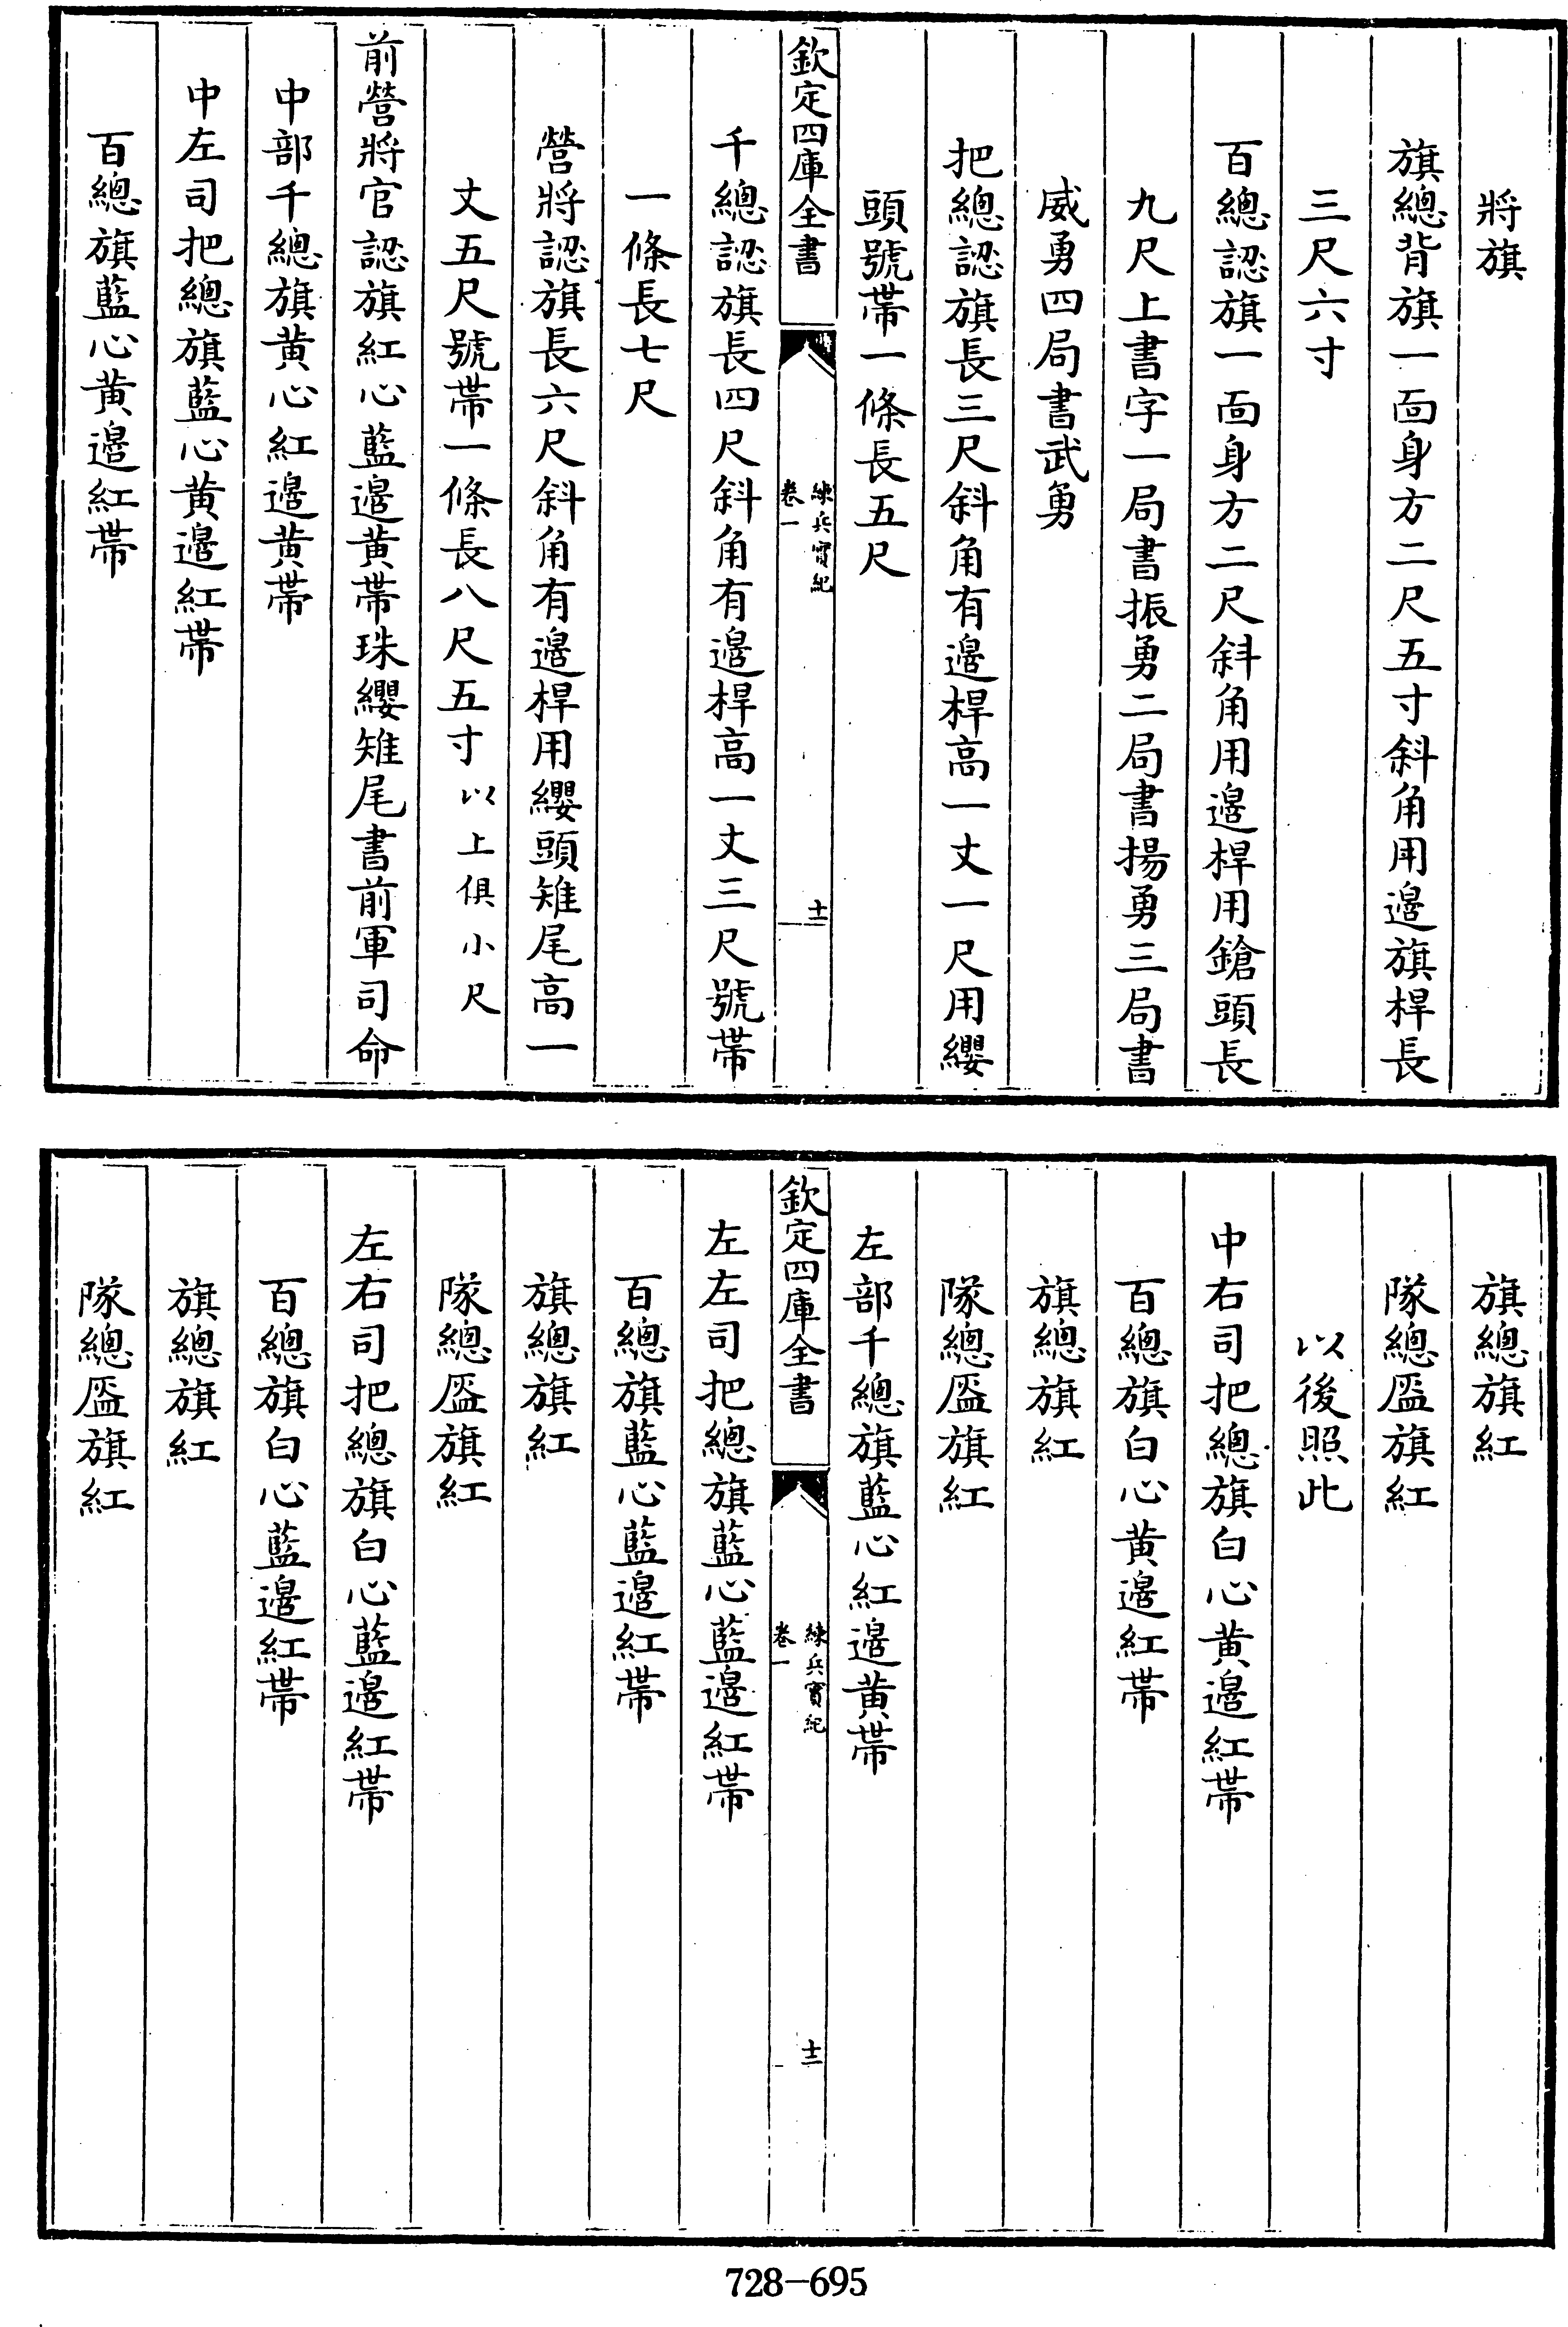 將旗
旗總背旗一面身方二尺五寸斜角用邉旗桿長
三尺六寸
百總認旗一面身方二尺斜角用邉桿用鎗頭長
九尺上書字一局書振勇二局書揚勇三局書
威勇四局書武勇
把總認旗長三尺斜角有邉桿高一丈一尺用纓
頭號帶一條長五尺
欽定四庫全書
練兵實紀
卷一
十一
千總認旗長四尺斜角有邉桿高一丈三尺號帶
一條長七尺
營將認旗長六尺斜角有邉桿用纓頭雉尾高一
丈五尺號帶一條長八尺五寸以上俱小尺
前營將官認旗紅心藍邉黄帶珠纓雉尾書前軍司命
中部千總旗黄心紅邉黄帶
中左司把總旗藍心黄邉紅帶
百總旗藍心黄邉紅帶
旗總旗紅
隊總盔旗紅
以後照此
中右司把總旗白心黄邉紅帶
百總旗白心黄邉紅帶
旗總旗紅
隊總盔旗紅
左部千總旗藍心紅邉黄帶
欽定四庫全書
練兵實紀
卷一
十二
左左司把總旗藍心藍邉紅帶
百總旗藍心藍邉紅帶
旗總旗紅
隊總盔旗紅
左右司把總旗白心藍邉紅帶
百總旗白心藍邉紅帶
旗總旗紅
隊總盔旗紅
728-695